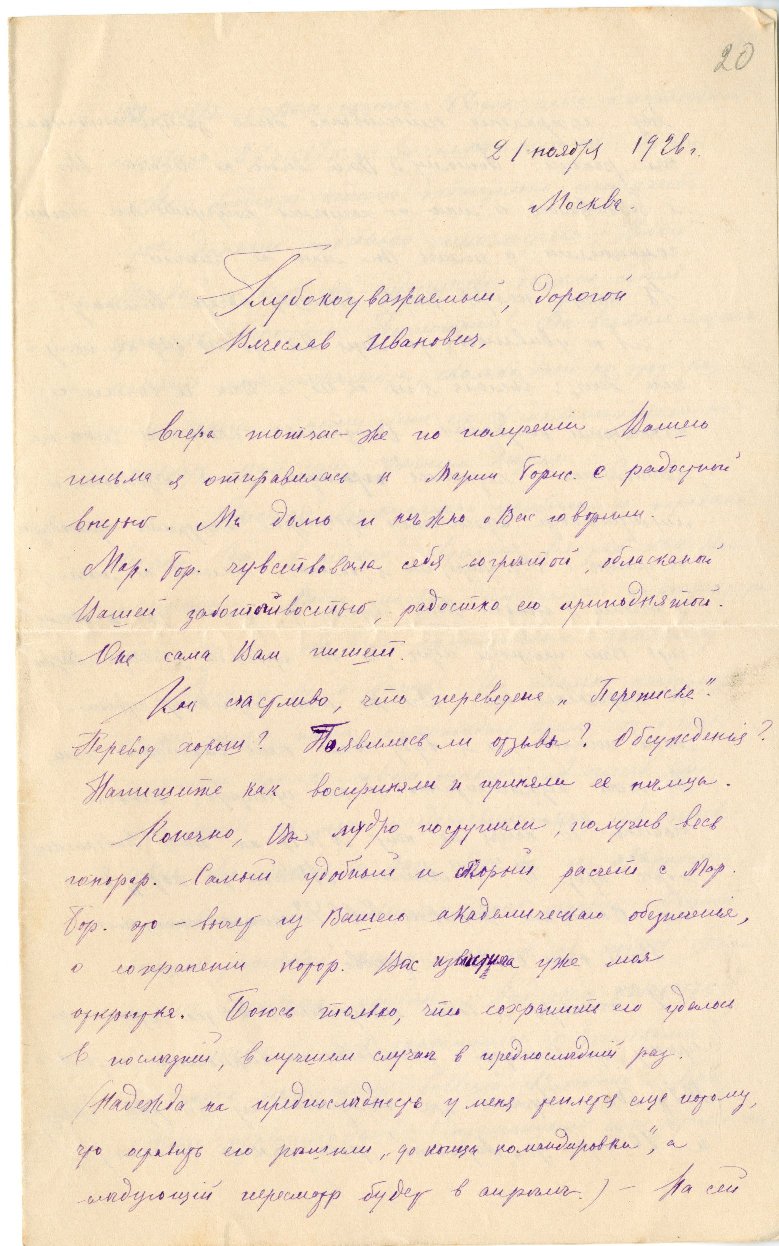 20
21 ноября 1926 г.
Москва.
Глубокоуважаемый, дорогой
Вячеслав Иванович,
Вчера тотчас-же по получении Вашего
письма я отправилась к Марии Борис. с радостной
вестью. Мы долго и нѣжно о Вас говорили.
Мар. Бор. чувствовала себя согрѣтой, обласканой
Вашей заботливостью, радостно ею приподнятой.
Она сама Вам пишет.
Как счастливо, что переведена „Переписка".
Перевод хорош? Появились ли отзывы? Обсужденія?
Напишите как восприняли и приняли ее нѣмцы.
Конечно, Вы мудро поступили, получив весь
гонорар. Самый удобный и скорый расчет с Мар.
Бор. это – вычет из Вашего академическаго обезпеченія,
о сохранении котор. Вас извѣстила уже моя
открытка. Боюсь только, что сохранить его удалось
в послѣдній, в лучшем случаѣ в предпослѣдній раз.
(Надежда на предпослѣдность у меня теплется еще потому,
что оставить его рѣшили „до конца командировки", а
слѣдующій пересмотр будет в апрѣлѣ.) – На сей